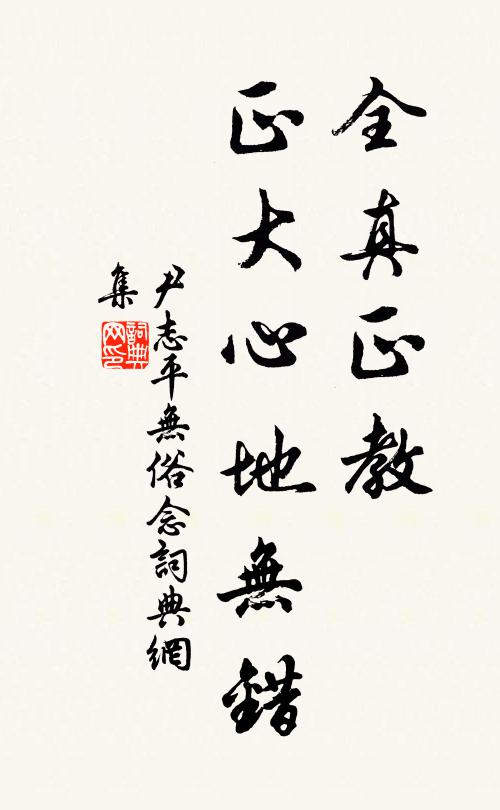 全真正教
正大心地無錯
尹志平無俗念詞典網
集
詞典
网印